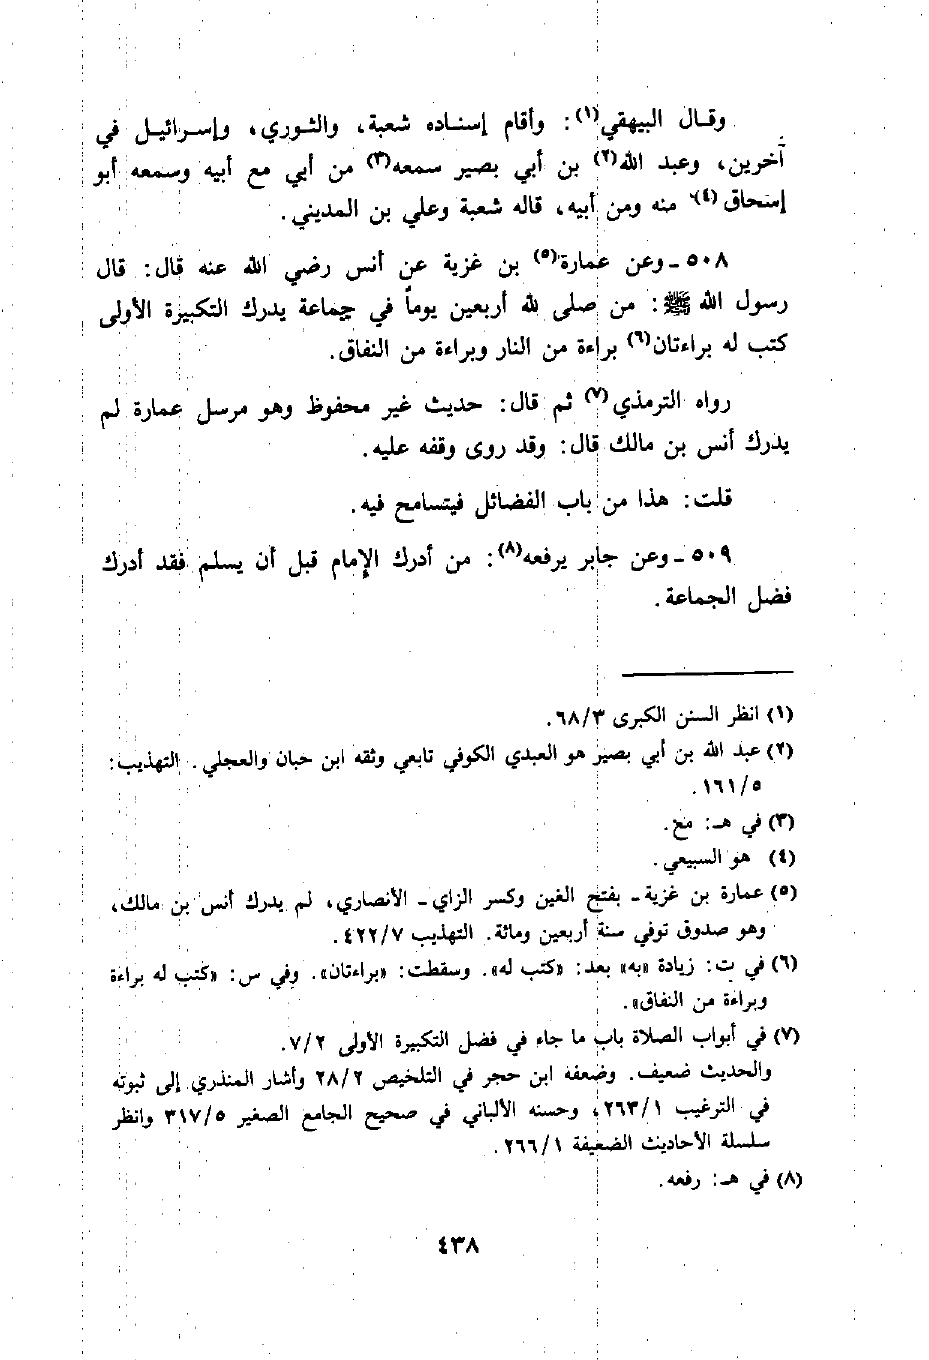 وقال البيهقي(١): وأقام إسناده شعبة، والثوري، وإسرائيل في
آخرين، وعبد الله(٢) بن أبي بصير سمعه(٣) من أبي مع أبيه وسمعه أبو
إسحاق(٤) منه ومن أبيه، قاله شعبة وعلي بن المديني.
٥٠٨ ـ وعن عمارة(٥) بن غزية عن أنس رضي الله عنه قال: قال
رسول الله ﷺ: من صلى لله أربعين يوماً في جماعة يدرك التكبيرة الأولى
كتب له براءتان(٦) براءة من النار وبراءة من النفاق.
رواه الترمذي(٧) ثم قال: حديث غير محفوظ وهو مرسل عمارة لم
يدرك أنس بن مالك قال: وقد روى وقفه عليه.
قلت: هذا من باب الفضائل فيتسامح فيه.
٥٠٩ ـ وعن جابر يرفعه(٨): من أدرك الإمام قبل أن يسلم فقد أدرك
فضل الجماعة.
(١) انظر السنن الكبرى ٦٨/٣.
(٢) عبد الله بن أبي بصير هو العبدي الكوفي تابعي وثقه ابن حبان والعجلي. التهذيب:
١٦١/٥.
(٣) في هـ: مع.
(٤) هو السبيعي.
(٥) عمارة بن غزية ـ بفتح الغين وكسر الزاي ـ الأنصاري، لم يدرك أنس بن مالك،
وهو صدوق توفي سنة أربعين ومائة. التهذيب ٤٢٢/٧.
(٦) في ت: زيادة «به» بعد: «كتب له». وسقطت: «براءتان». وفي س: «كتب له براءة
وبراءة من النفاق».
(٧) في أبواب الصلاة باب ما جاء في فضل التكبيرة الأولى ٧/٢.
والحديث ضعيف. وضعفه ابن حجر في التلخيص ٢٨/٢ وأشار المنذري إلى ثبوته
في الترغيب ٢٦٣/١، وحسنه الألباني في صحيح الجامع الصغير ٣١٧/٥ وانظر
سلسلة الأحاديث الضعيفة ٢٦٦/١.
(٨) في هـ: رفعه.
٤٣٨